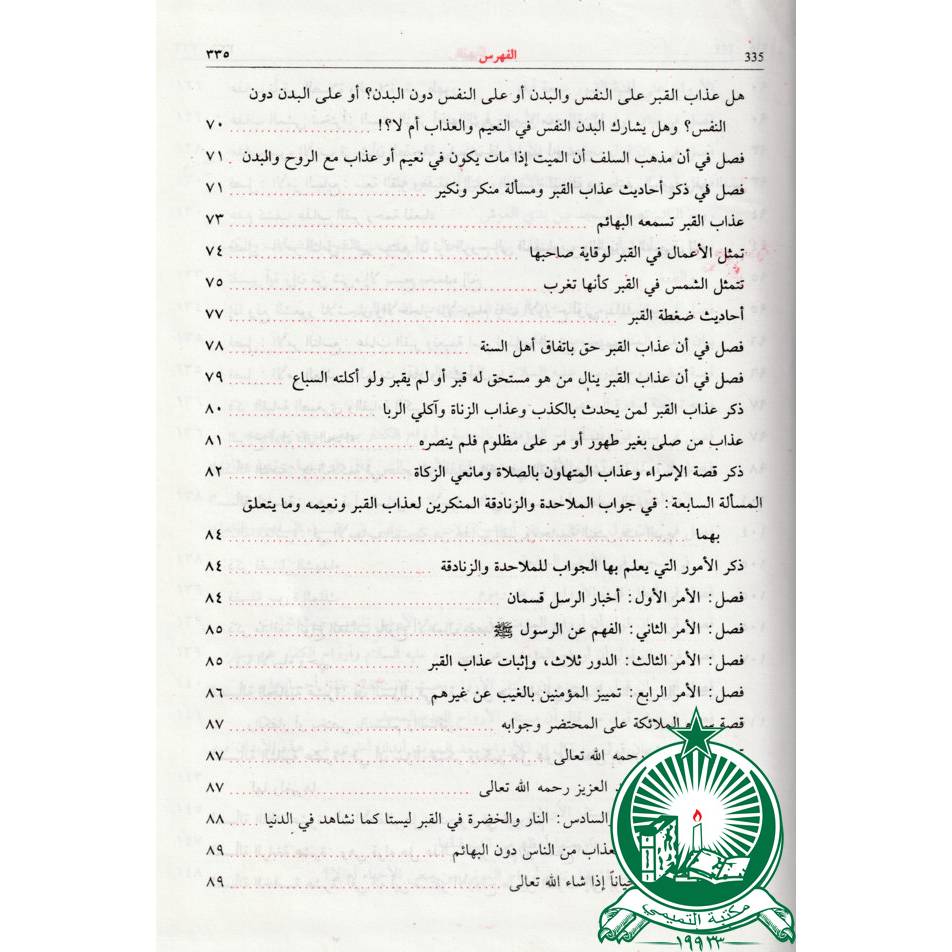 335 الفهرس ٣٣٥
هل عذاب القبر على النفس والبدن أو على النفس دون البدن؟ أو على البدن دون
النفس؟ وهل يشارك البدن النفس في النعيم والعذاب أم لا؟! ٧٠
فصل في أن مذهب السلف أن الميت إذا مات يكون في نعيم أو عذاب مع الروح والبدن ٧١
فصل في ذكر أحاديث عذاب القبر ومسألة منكر ونكير ٧١
عذاب القبر تسمعه البهائم ٧٣
تمثل الأعمال في القبر لوقاية صاحبها ٧٤
تتمثل الشمس في القبر كأنها تغرب ٧٥
أحاديث ضغطة القبر ٧٧
فصل في أن عذاب القبر حق باتفاق أهل السنة ٧٨
فصل في أن عذاب القبر ينال من هو مستحق له قبر أو لم يقبر ولو أكلته السباع ٧٩
ذكر عذاب القبر لمن يحدث بالكذب وعذاب الزناة وآكلي الربا ٨٠
عذاب من صلى بغير طهور أو مر على مظلوم فلم ينصره ٨١
ذكر قصة الإسراء وعذاب المتهاون بالصلاة ومانعي الزكاة ٨٢
المسألة السابعة: في جواب الملاحدة والزنادقة المنكرين لعذاب القبر ونعيمه وما يتعلق
بهما ٨٤
ذكر الأمور التي يعلم بها الجواب للملاحدة والزنادقة ٨٤
فصل: الأمر الأول: أخبار الرسل قسمان ٨٤
فصل: الأمر الثاني: الفهم عن الرسول ﷺ ٨٥
فصل: الأمر الثالث: الدور ثلاث، وإثبات عذاب القبر ٨٥
فصل: الأمر الرابع: تمييز المؤمنين بالغيب عن غيرهم ٨٦
قصة الملائكة على المحتضر وجوابه ٨٧
رحمه الله تعالى ٨٧
العزيز رحمه الله تعالى ٨٧
السادس: النار والخضرة في القبر ليستا كما نشاهد في الدنيا ٨٨
من الناس دون البهائم ٨٩
إذا شاء الله تعالى ٨٩
مكتبة التميمي
١٩٩٣